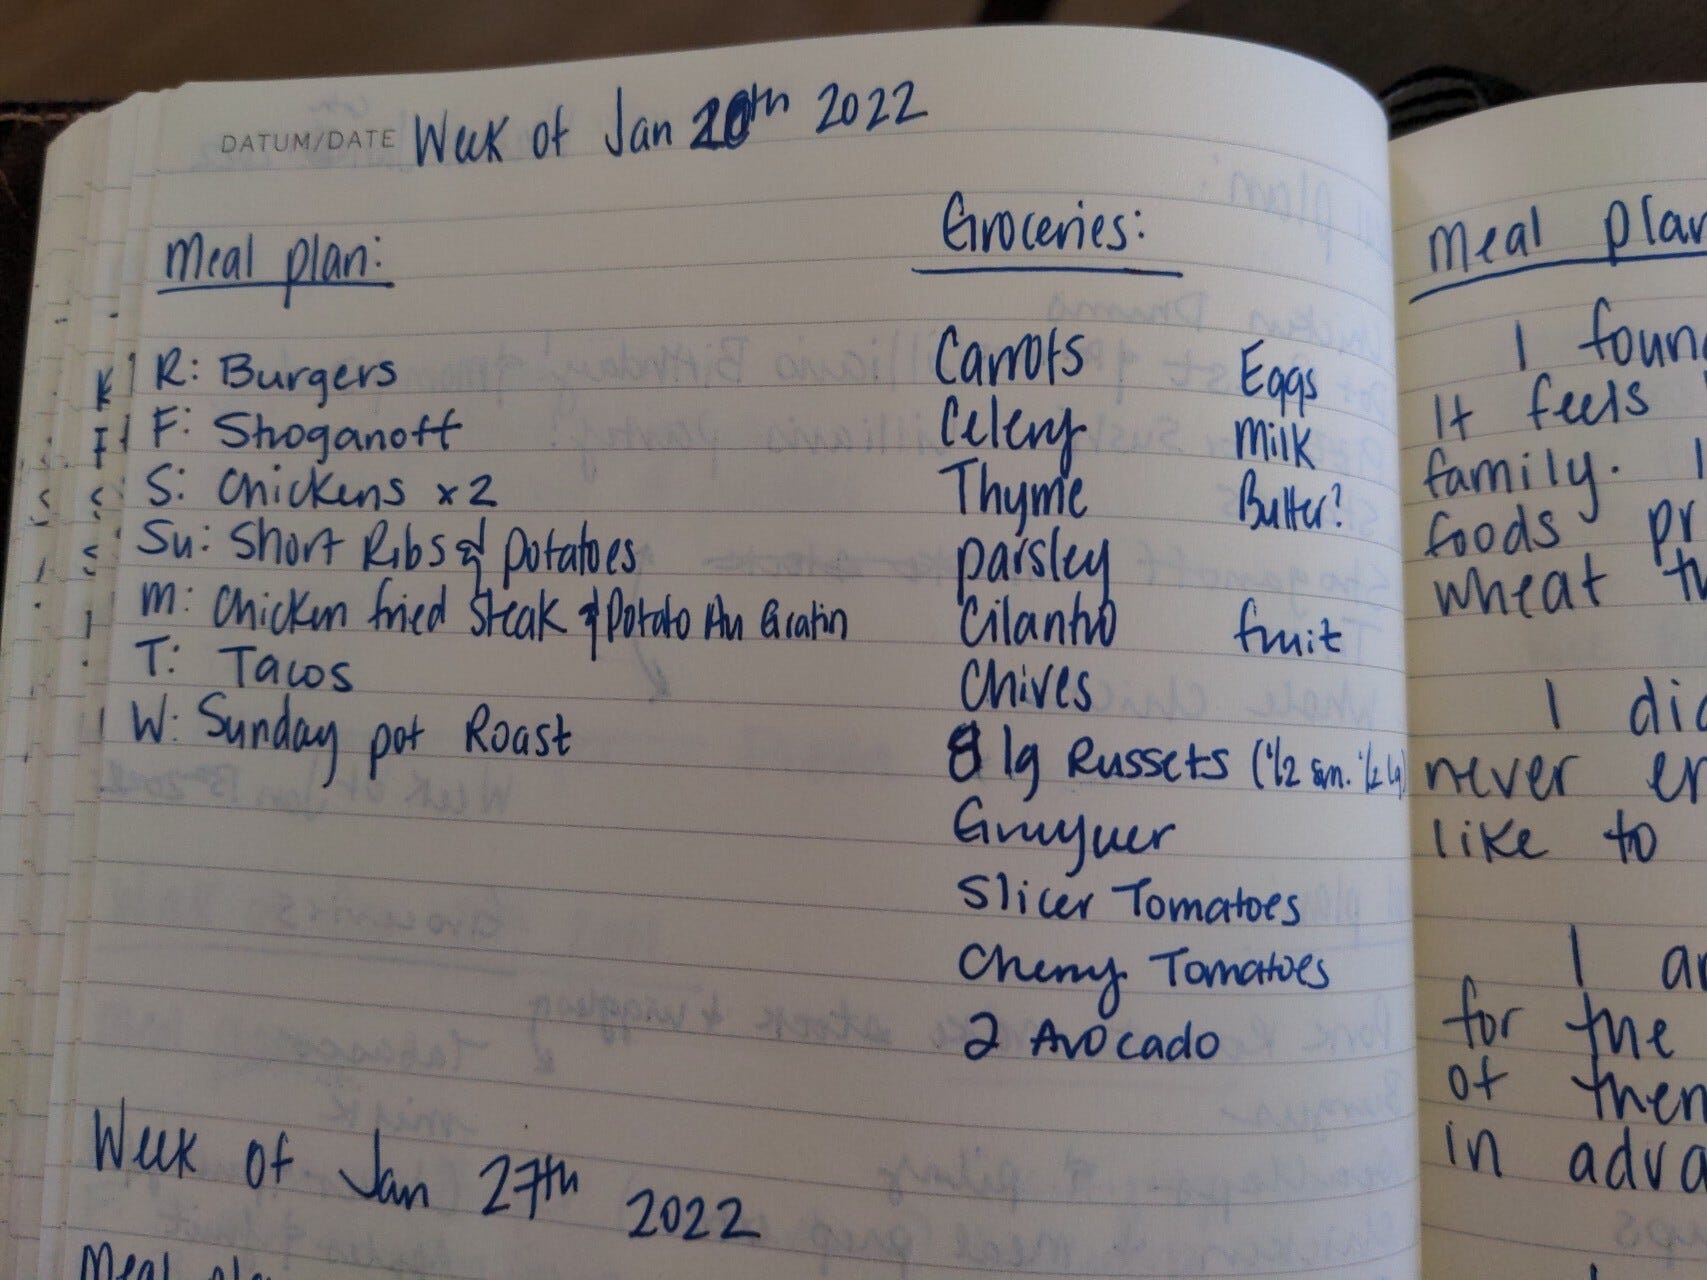 DATUM/DATE Week of Jan 20th 2022
Meal plan:
R: Burgers
F: Stroganoff
S: Chickens x2
Su: Short Ribs & potatoes
M: Chicken fried Steak & Potato Au Gratin
T: Tacos
W: Sunday pot Roast
Groceries:
Carrots
Celery
Thyme
parsley
Cilantro
Chives
8 lg Russets (1/2 sm. 1/2 lg)
Gruyuer
Slicer Tomatoes
Cherry Tomatoes
2 Avocado
Eggs
Milk
Butter?
fruit
Week of Jan 27th 2022
Meal
Meal
I
It feels
family. I
foods
wheat
I
never
like to
I
for the
of
in